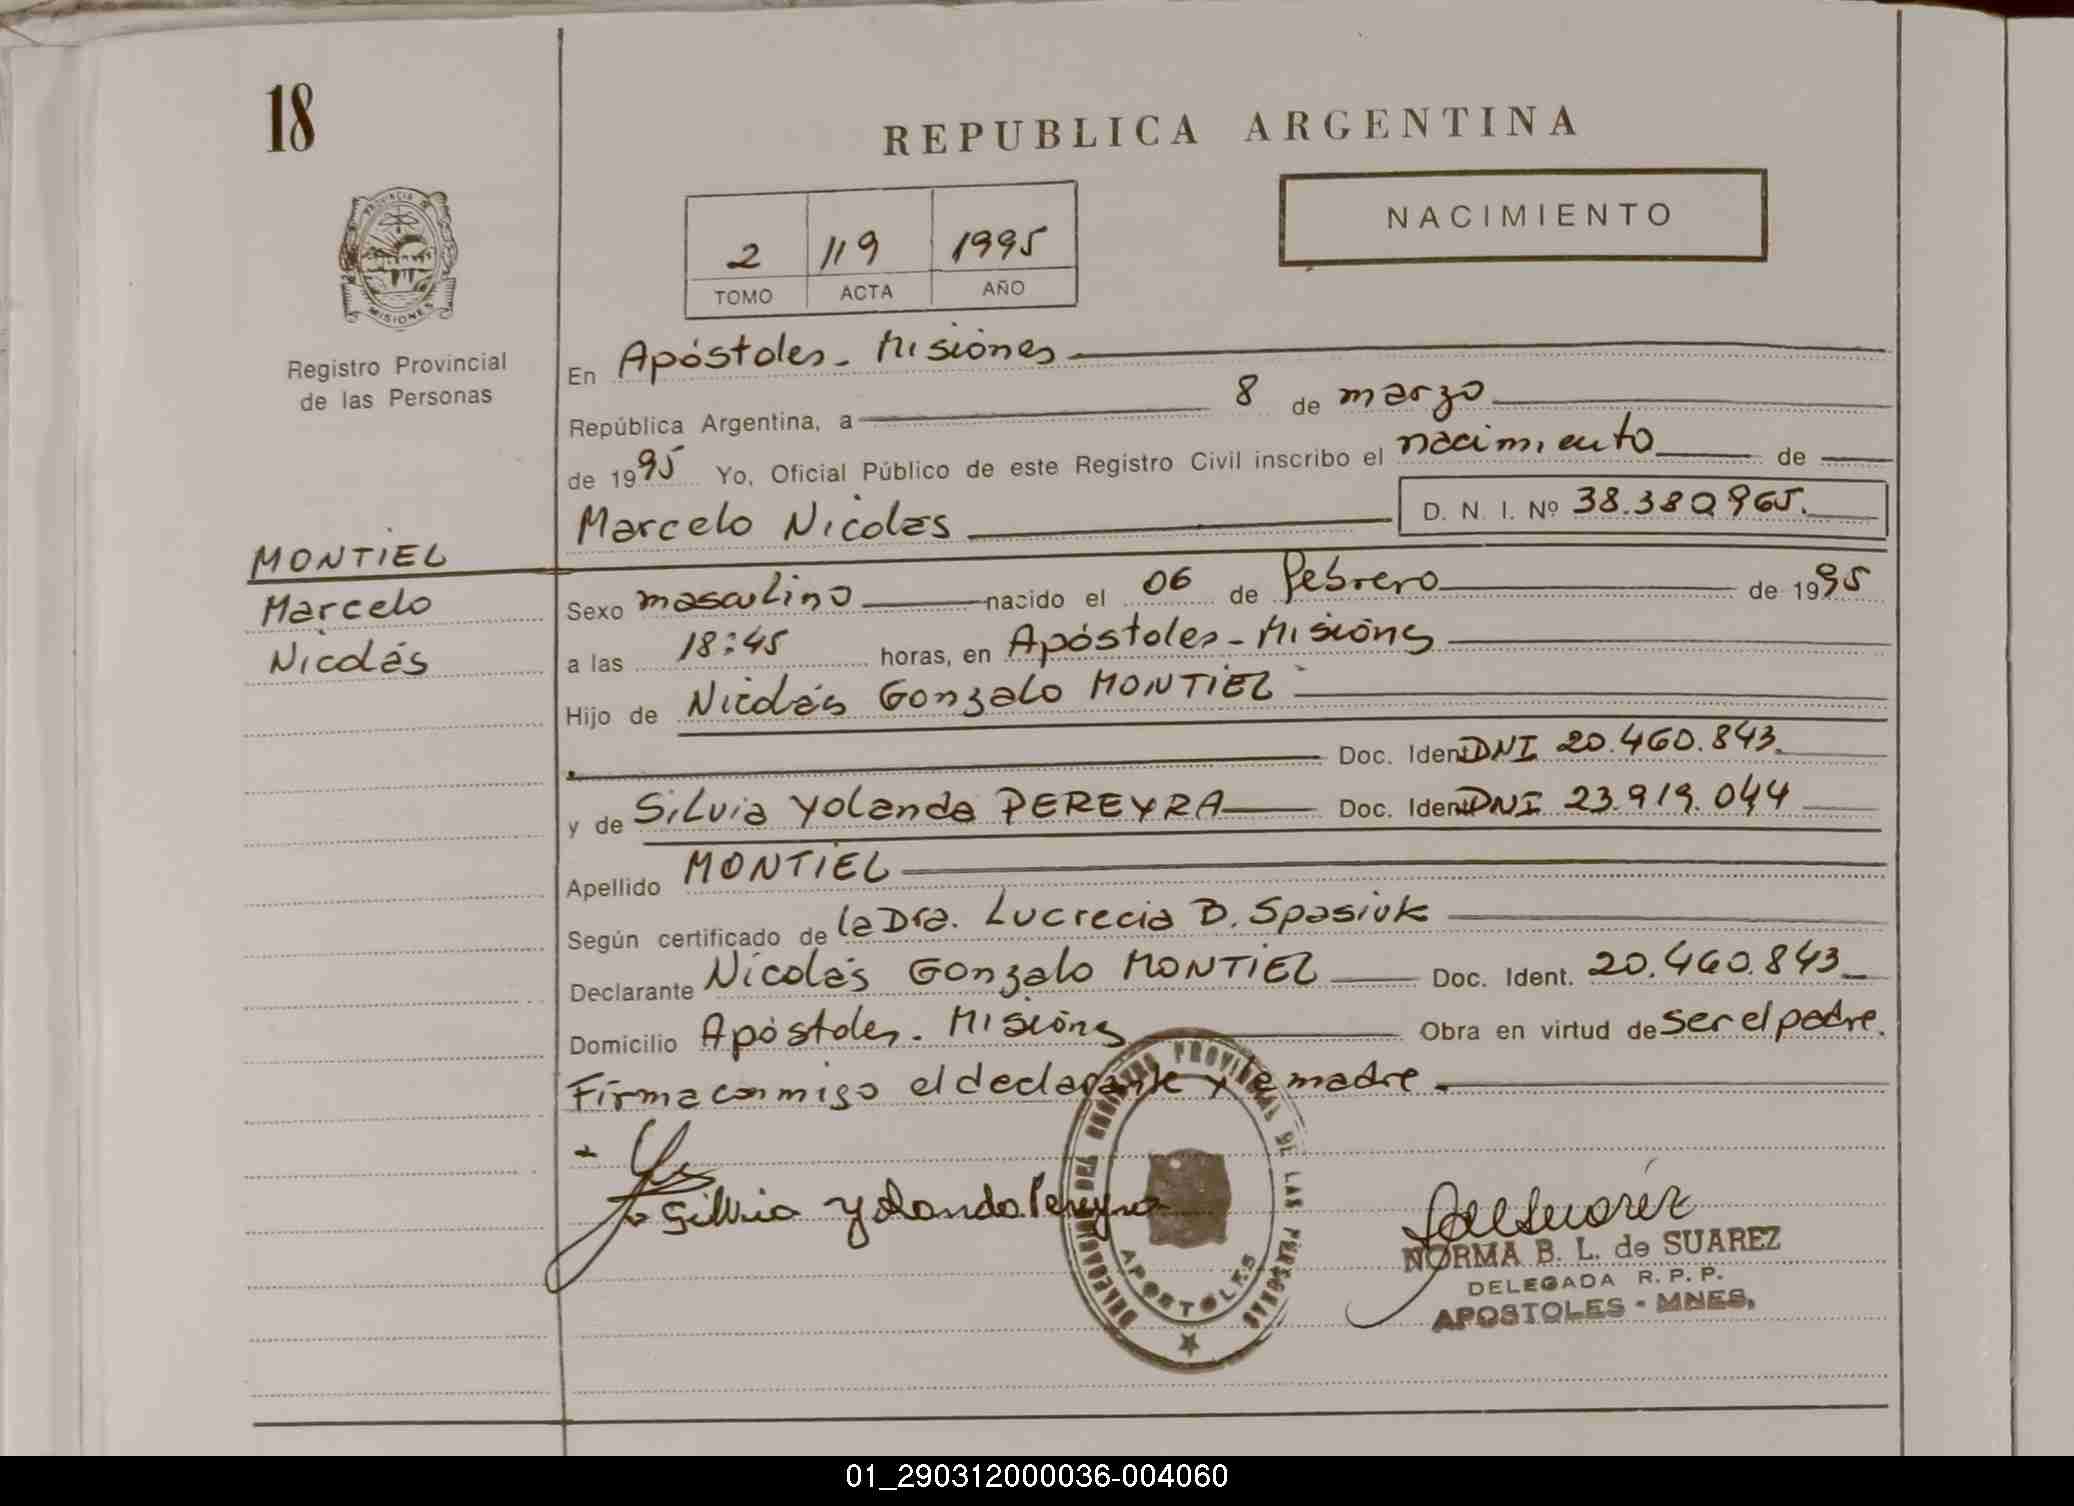 18
REPUBLICA ARGENTINA
NACIMIENTO
2 119 1995
TOMO ACTA AÑO
PROVINCIA DE MISIONES
Registro Provincial
de las Personas
En Apóstoles - Misiones
República Argentina, a 8 de marzo
de 1995 Yo, Oficial Público de este Registro Civil inscribo el nacimiento de
Marcelo Nicolas D. N. I. Nº 38.380.965.
MONTIEL
Marcelo
Nicolás
Sexo masculino nacido el 06 de febrero de 1995
a las 18:45 horas, en Apóstoles - Misiones
Hijo de Nicolás Gonzalo MONTIEL
Doc. Ident. DNI 20.460.843.
y de Silvia Yolanda PEREYRA Doc. Ident. DNI 23.919.044
Apellido MONTIEL
Según certificado de la Dra. Lucrecia B. Spasiuk
Declarante Nicolás Gonzalo MONTIEL Doc. Ident. 20.460.843
Domicilio Apóstoles - Misiones Obra en virtud de ser el padre.
Firma conmigo el declarante y la madre.
Silvia Yolanda Pereyra
DELEGACION DEL REGISTRO PROVINCIAL DE LAS PERSONAS
APOSTOLES
NORMA B. L. de SUAREZ
DELEGADA R. P. P.
APOSTOLES - MNES.
01_290312000036-004060